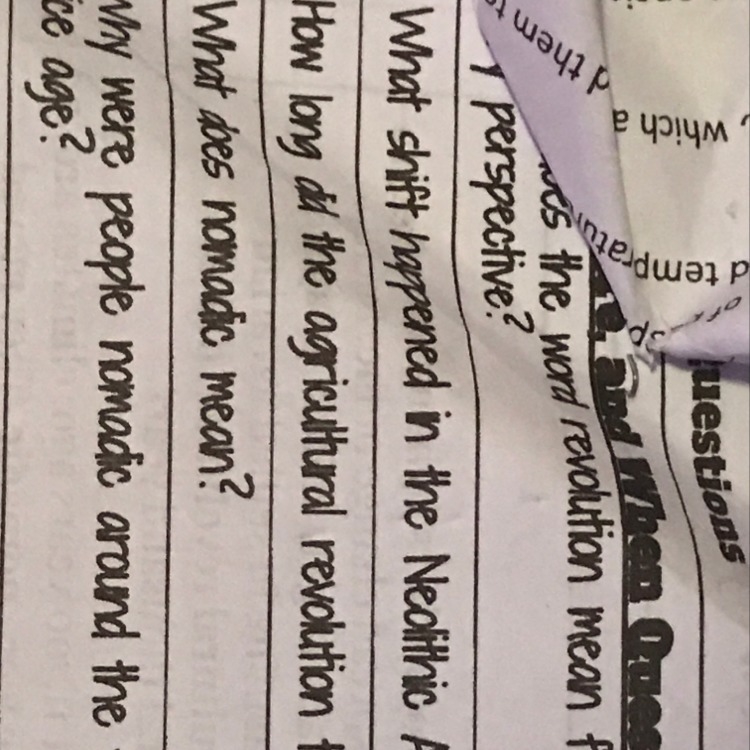 uestions
and When Ques
the word revolution mean f
y perspective?
What shift happened in the Neolithic A
How long did the agricultural revolution t
What does nomadic mean?
Why were people nomadic around the
ice age?
d them to
, which a
d tempratur